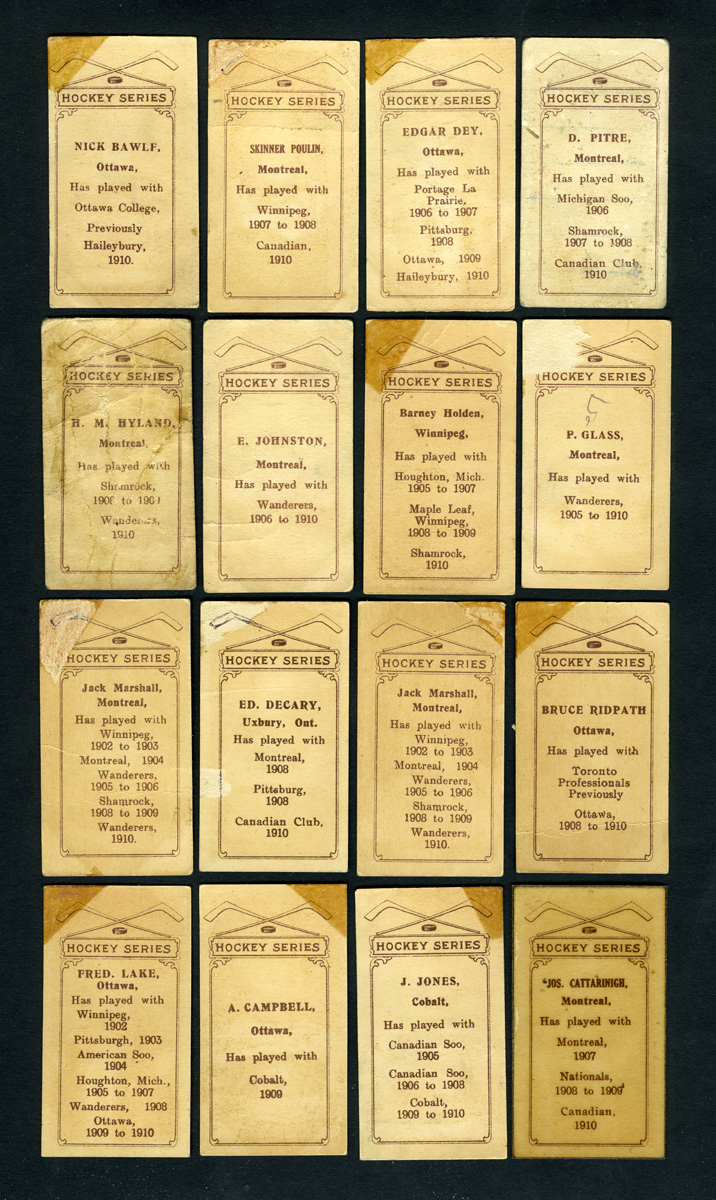 HOCKEY SERIES
NICK BAWLF,
Ottawa,
Has played with
Ottawa College,
Previously
Haileybury,
1910.
HOCKEY SERIES
SKINNER POULIN,
Montreal,
Has played with
Winnipeg,
1907 to 1908
Canadian,
1910
HOCKEY SERIES
EDGAR DEY,
Ottawa,
Has played with
Portage La
Prairie,
1906 to 1907
Pittsburg,
1908
Ottawa, 1909
Haileybury, 1910
HOCKEY SERIES
D. PITRE,
Montreal,
Has played with
Michigan Soo,
1906
Shamrock,
1907 to 1908
Canadian Club,
1910
HOCKEY SERIES
H. M. HYLAND,
Montreal,
Has played with
Shamrock,
to
Wanderers,
1910
HOCKEY SERIES
E. JOHNSTON,
Montreal,
Has played with
Wanderers,
1906 to 1910
HOCKEY SERIES
Barney Holden,
Winnipeg,
Has played with
Houghton, Mich.
1905 to 1907
Maple Leaf,
Winnipeg,
1908 to 1909
Shamrock,
1910
HOCKEY SERIES
5
P. GLASS,
Montreal,
Has played with
Wanderers,
1905 to 1910
HOCKEY SERIES
Jack Marshall,
Montreal,
Has played with
Winnipeg,
1902 to 1903
Montreal, 1904
Wanderers,
1905 to 1906
Shamrock,
1908 to 1909
Wanderers,
1910.
HOCKEY SERIES
ED. DECARY,
Uxbury, Ont.
Has played with
Montreal,
1908
Pittsburg,
1908
Canadian Club,
1910
HOCKEY SERIES
Jack Marshall,
Montreal,
Has played with
Winnipeg,
1902 to 1903
Montreal, 1904
Wanderers,
1905 to 1906
Shamrock,
1908 to 1909
Wanderers,
1910.
HOCKEY SERIES
BRUCE RIDPATH
Ottawa,
Has played with
Toronto
Professionals
Previously
Ottawa,
1908 to 1910
HOCKEY SERIES
FRED. LAKE,
Ottawa,
Has played with
Winnipeg,
1902
Pittsburgh, 1903
American Soo,
1904
Houghton, Mich.,
1905 to 1907
Wanderers, 1908
Ottawa,
1909 to 1910
HOCKEY SERIES
A. CAMPBELL,
Ottawa,
Has played with
Cobalt,
1909
HOCKEY SERIES
J. JONES,
Cobalt,
Has played with
Canadian Soo,
1905
Canadian Soo,
1906 to 1908
Cobalt,
1909 to 1910
HOCKEY SERIES
JOS. CATTARINIGH,
Montreal,
Has played with
Montreal,
1907
Nationals,
1908 to 1909
Canadian,
1910